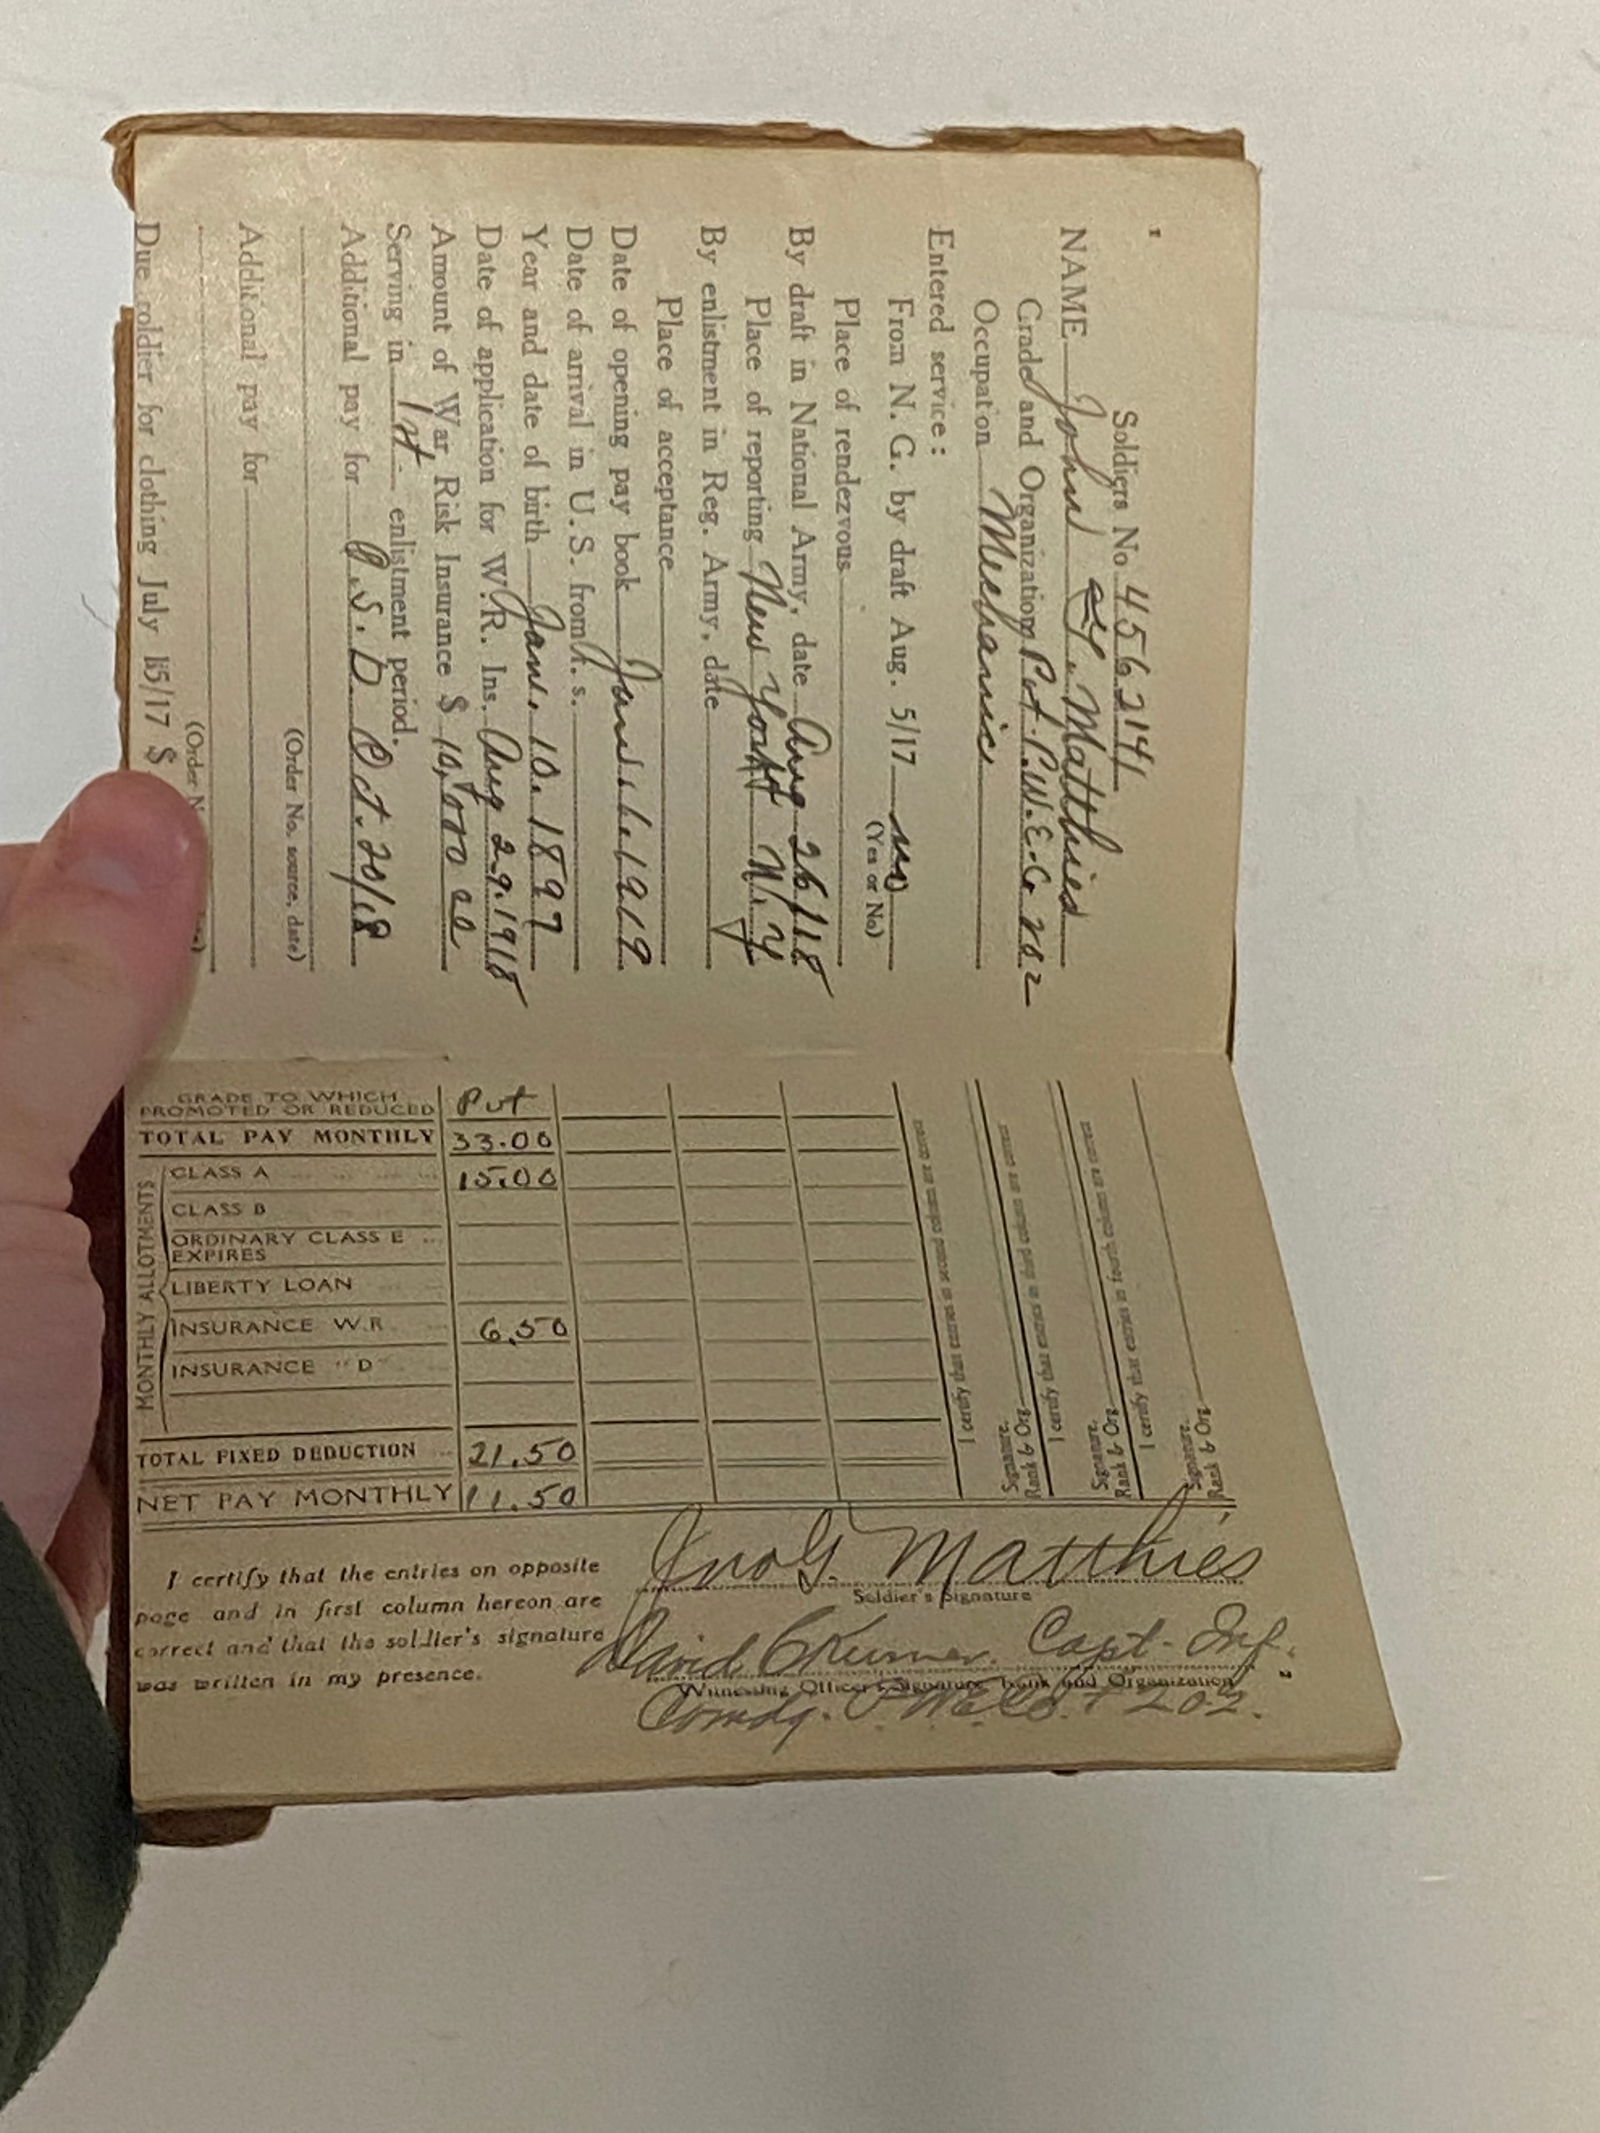 1
Soldiers No. 4562141
NAME John G. Matthies
Grade and Organization Pvt P.W.E.Co 202
Occupation Mechanic
Entered service:
From N. G. by draft Aug. 5/17 no
(Yes or No)
Place of rendezvous
By draft in National Army, date Aug 26/18
Place of reporting New York N.Y
By enlistment in Reg. Army, date
Place of acceptance
Date of opening pay book June 1. 1919
Date of arrival in U.S. from F. S.
Year and date of birth Jan. 10. 1897
Date of application for W.R. Ins. Aug 29. 1918
Amount of War Risk Insurance $ 10,000 00
Serving in 1st enlistment period.
Additional pay for F.S. D. Oct. 20/18
(Order No. source, date)
Additional pay for
(Order
Due soldier for clothing July 15/17 $
GRADE TO WHICH PROMOTED OR REDUCED Pvt
TOTAL PAY MONTHLY 33.00
MONTHLY ALLOTMENTS
CLASS A 15.00
CLASS B
ORDINARY CLASS E
EXPIRES
LIBERTY LOAN
INSURANCE W.R. 6.50
INSURANCE "D"
TOTAL FIXED DEDUCTION 21.50
NET PAY MONTHLY 11.50
I certify that the entries in second column are correct
Signature.
Rank & Org.
I certify that entries in third column are correct
Signature.
Rank & Org.
I certify that entries in fourth column are correct
Signature.
Rank & Org.
I certify that the entries on opposite
page and in first column hereon are
correct and that the soldier's signature
was written in my presence.
Jno G. Matthies
Soldier's Signature
David Capt. Inf.
Witnessing Officer's Signature, Rank and Organization
Comdg. P W E Co. # 202.
2